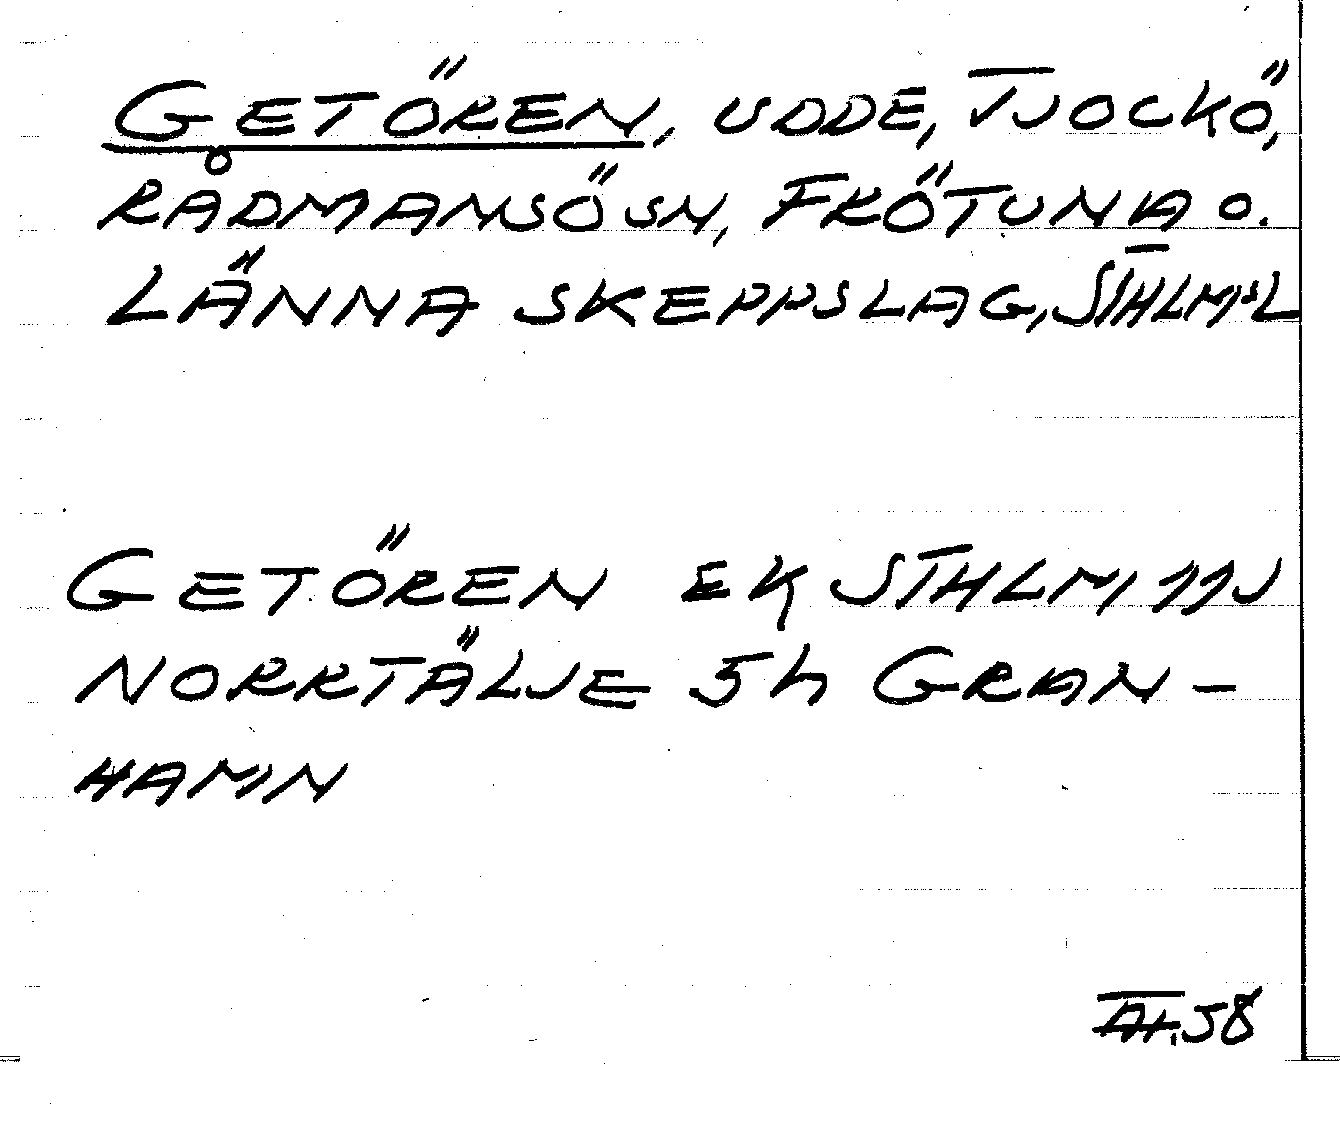 GETÖREN, UDDE, TJOCKÖ,
RÅDMANSÖ SN, FRÖTUNA O.
LÄNNA SKEPPSLAG, STHLMSL
GETÖREN EK STHLM 11J
NORRTÄLJE 5h GRAN-
HAMN
58